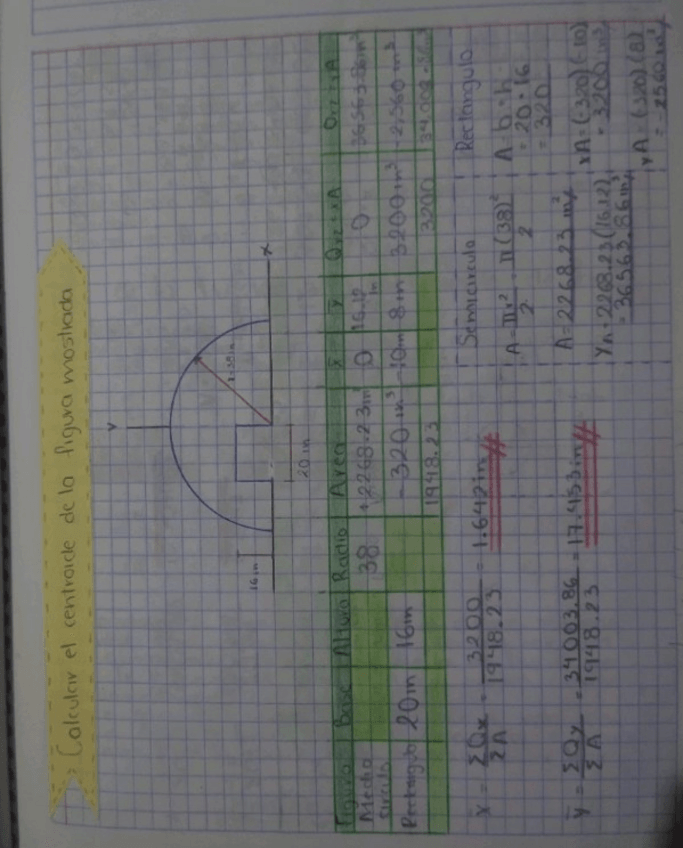 Calcular el centroide de la figura mostrada
Y
X
16 in
20 in
Figura Base Altura Radio Area x̄ ȳ
Medio circulo 38 +2268.23in² 0 16.12 in 0 36563.86in³
Rectangulo 20in 16in -320in² -10in 8in 3200in³ -2,560in³
1948.23 3200
x̄ = ΣQx / ΣA = 3200 / 1948.23 = 1.642in
ȳ = ΣQy / ΣA = 34003.86 / 1948.23 = 17.453in
Semicirculo
A = πr² / 2 = π(38)² / 2
A = 2268.23 in²
YA = 2268.23(16.12)
= 36563.86in³
Rectangulo
A = b × h
= 20 × 16
= 320
xA = (-320)(-10)
= 3200in³
YA = (-320)(8)
= -2560in³